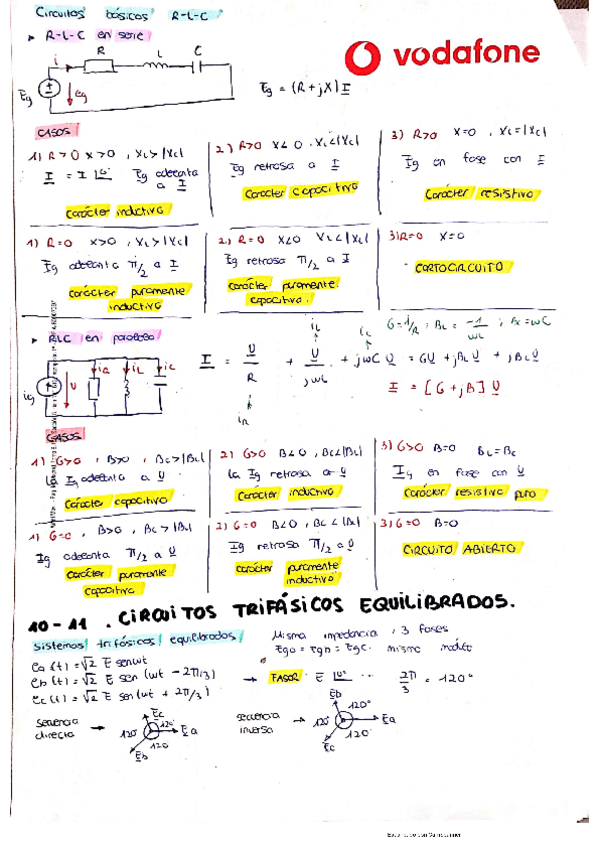 Circuitos básicos R-L-C
➤ R-L-C en serie
R L C
i
Eg eg
Eg = (R + jX) I
vodafone
CASOS
1) R > 0 X > 0 , XL > |Xc|
I = I |0° Eg adelanta
a I
Carácter inductivo
2) R>0 X<0 . XL<|Xc|
Eg retrasa a I
Carácter capacitivo
3) R>0 X=0 , XL=|Xc|
Eg en fase con I
Carácter resistivo
1) R=0 X>0 , XL>|Xc|
Eg adelanta π/2 a I
carácter puramente
inductivo
2) R=0 X<0 XL<|Xc|
Eg retrasa π/2 a I
carácter puramente
capacitivo.
3) R=0 X=0
CORTOCIRCUITO
➤ RLC en paralelo
ig U iR iL iC
I = U/R + U/jωL + jωC U = GU + jBL U + jBc U
iR iL ic
G=1/R ; BL = -1/ωL ; Bc=ωC
I = [G + jB] U
CASOS
1) G>0 B>0 , Bc>|BL|
La Ig adelanta a U
Carácter capacitivo
2) G>0 B<0 , Bc<|BL|
La Ig retrasa a U
Carácter inductivo
3) G>0 B=0 BL=Bc
Ig en fase con U
Carácter resistivo puro
1) G=0 , B>0 , Bc>|BL|
Ig adelanta π/2 a U
Carácter puramente
capacitivo
2) G=0 B<0 , Bc<|BL|
Ig retrasa π/2 a U
carácter puramente
inductivo
3) G=0 B=0
CIRCUITO ABIERTO
10-11 . CIRCUITOS TRIFÁSICOS EQUILIBRADOS.
Sistemas trifásicos equilibrados
Misma impedancia , 3 fases
Ega = Egb = Egc. mismo módulo
ea(t) = √2 E senωt
eb(t) = √2 E sen (ωt - 2π/3)
ec(t) = √2 E sen (ωt + 2π/3)
→ FASOR E |0° ... 2π/3 = 120°
secuencia
directa → Ec Ea Eb 120° 120 120
secuencia
inversa → Eb Ea Ec 120° 120° 120